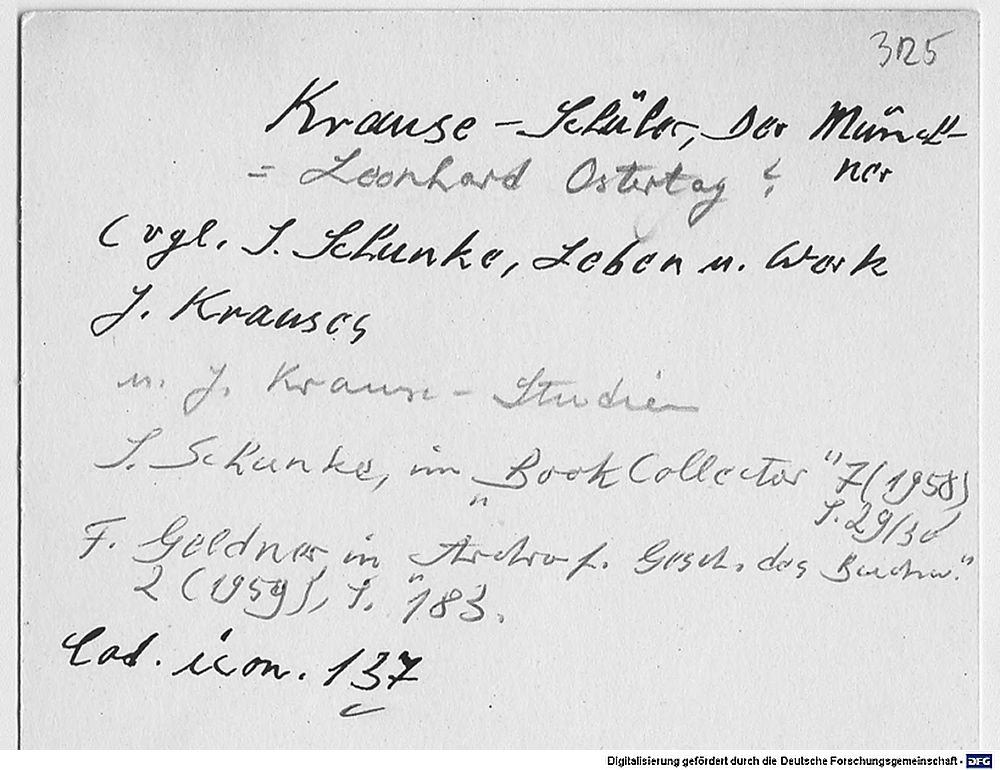 3125
Krause-Schüler, Der Münch-
ner
= Leonhard Ostertag ?
(vgl. I. Schunke, Leben u. Werk
J. Krauses
u. J. Krause-Studien
I. Schunke, im „Book Collector" 7 (1958)
S. 29/30
F. Geldner in „Archiv f. Gesch. des Buchw."
2 (1959), S. 183.
Cod. icon. 137
Digitalisierung gefördert durch die Deutsche Forschungsgemeinschaft - DFG